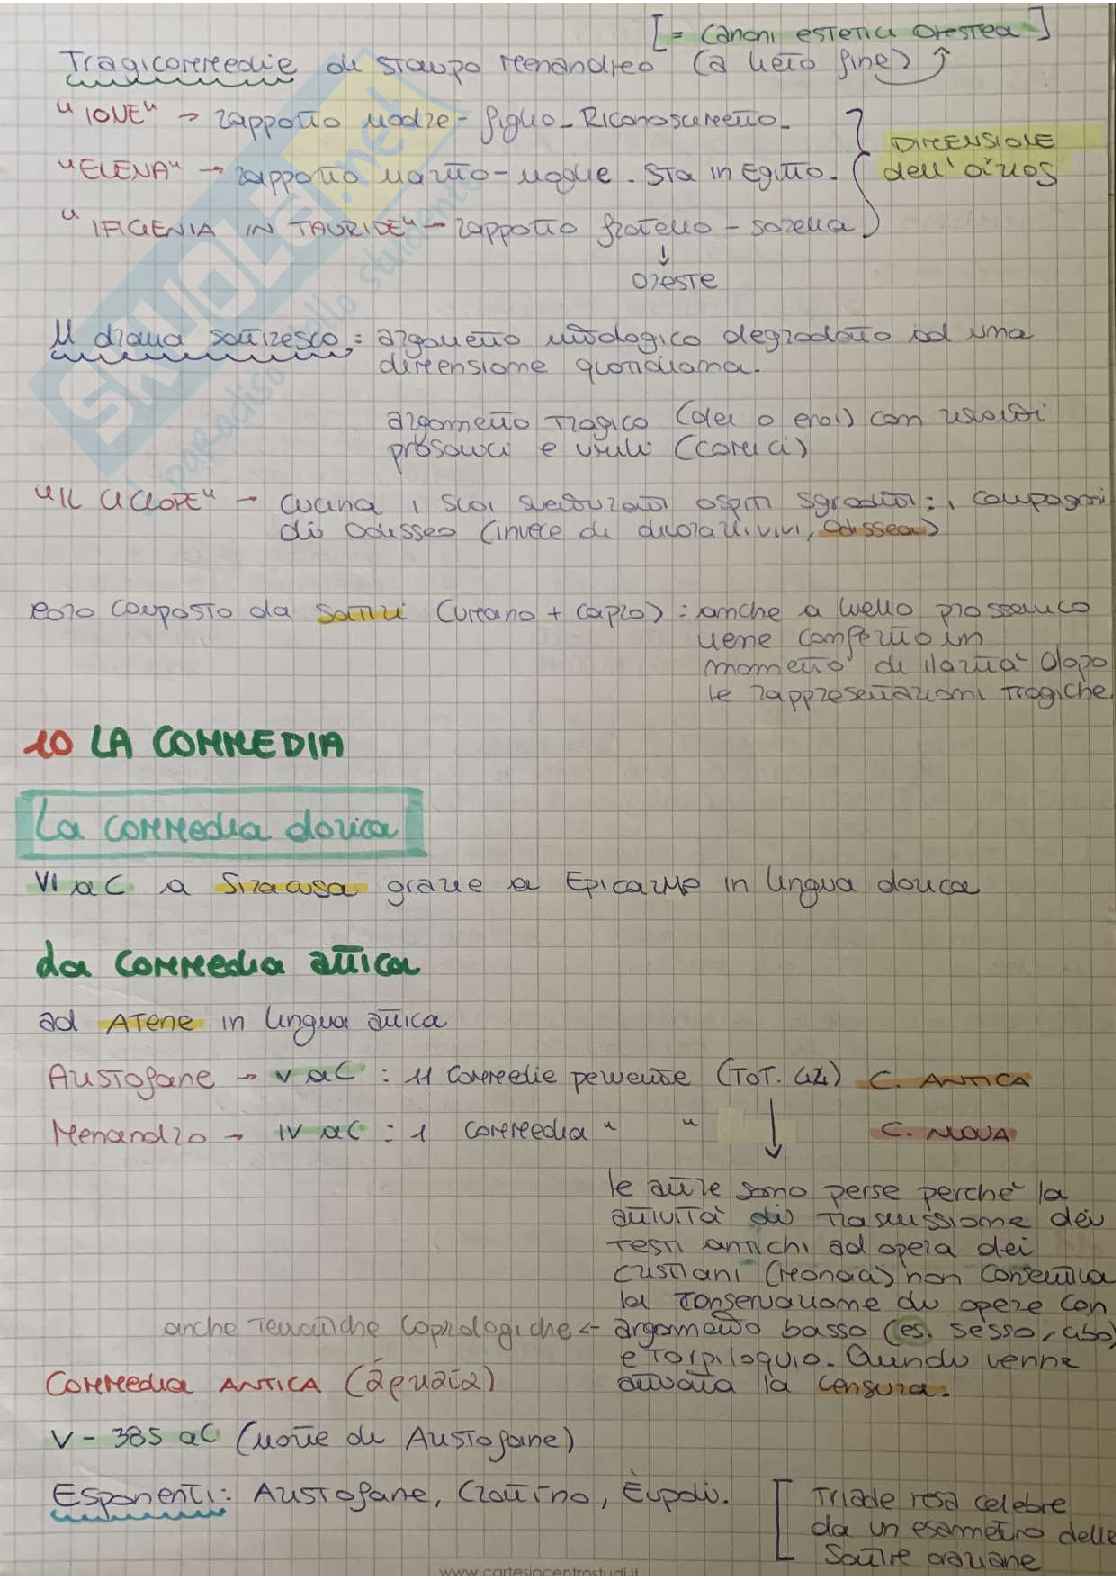 [= canoni estetici Orestea]
Tragicommedie di stampo Menandreo (a lieto fine)
"IONE" → rapporto madre-figlio. Riconoscimento.
"ELENA" → rapporto marito-moglie. Sta in Egitto.
DIMENSIONE
dell'oikos
"IFIGENIA IN TAURIDE" → rapporto fratello - sorella
↓
Oreste
Il drama satiresco: argomento mitologico degradato ad una
dimensione quotidiana.
argomento tragico (dei o eroi) con risvolti
prosaici e umili (comici)
"IL CICLOPE" → cucina i suoi sventurati ospiti sgraditi: i compagni
di Odisseo (invece di divorarli vivi, Odissea)
coro composto da Satiri (umano + capro): anche a livello prossemico
viene conferito un
momento di ilarità dopo
le rappresentazioni tragiche.
10 LA COMMEDIA
La commedia dorica
VI aC a Siracusa grazie a Epicarmo in lingua dorica
La commedia attica
ad Atene in lingua attica
Aristofane → V aC: 11 commedie pervenute (TOT. 44) C. ANTICA
Menandro → IV aC: 1 commedia " " C. NUOVA
le altre sono perse perché la
attività di trasmissione dei
testi antichi ad opera dei
cristiani (monaci) non consentiva
la conservazione di opere con
anche tematiche coprologiche ← argomento basso (es. sesso, cibo)
e torpiloquio. Quindi venne
attivata la censura.
Commedia ANTICA (ἀρχαία)
V - 385 aC (morte di Aristofane)
Esponenti: Aristofane, Cratino, Eupoli.
[Triade resa celebre
da un esametro delle
Satire oraziane
www.cartesiocentrostudi.it